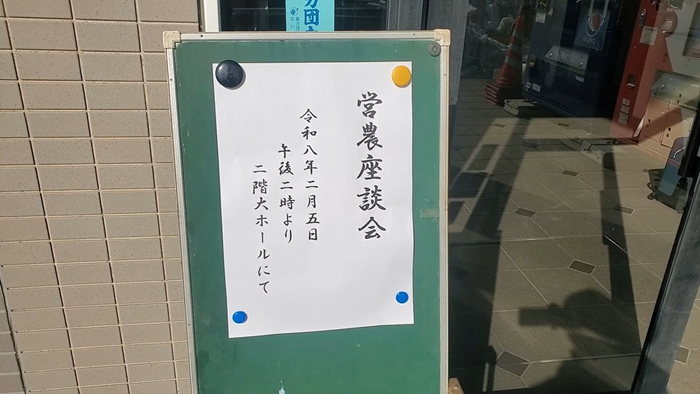 営農座談会
令和八年二月五日
午後二時より
二階大ホールにて
力団